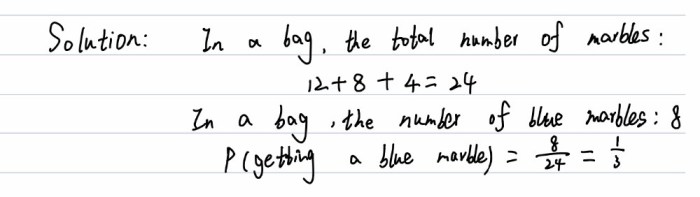 Solution: In a bag, the total number of marbles:
12+8+4=24
In a bag, the number of blue marbles: 8
P(getting a blue marble) = 8/24 = 1/3